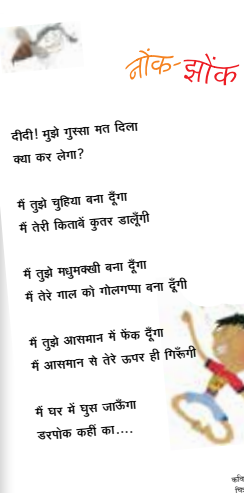 नोंक-झोंक
दीदी! मुझे गुस्सा मत दिला
क्या कर लेगा?
मैं तुझे चुहिया बना दूँगा
मैं तेरी किताबें कुतर डालूँगी
मैं तुझे मधुमक्खी बना दूँगा
मैं तेरे गाल को गोलगप्पा बना दूँगी
मैं तुझे आसमान में फेंक दूँगा
मैं आसमान से तेरे ऊपर ही गिरूँगी
मैं घर में घुस जाऊँगा
डरपोक कहीं का....